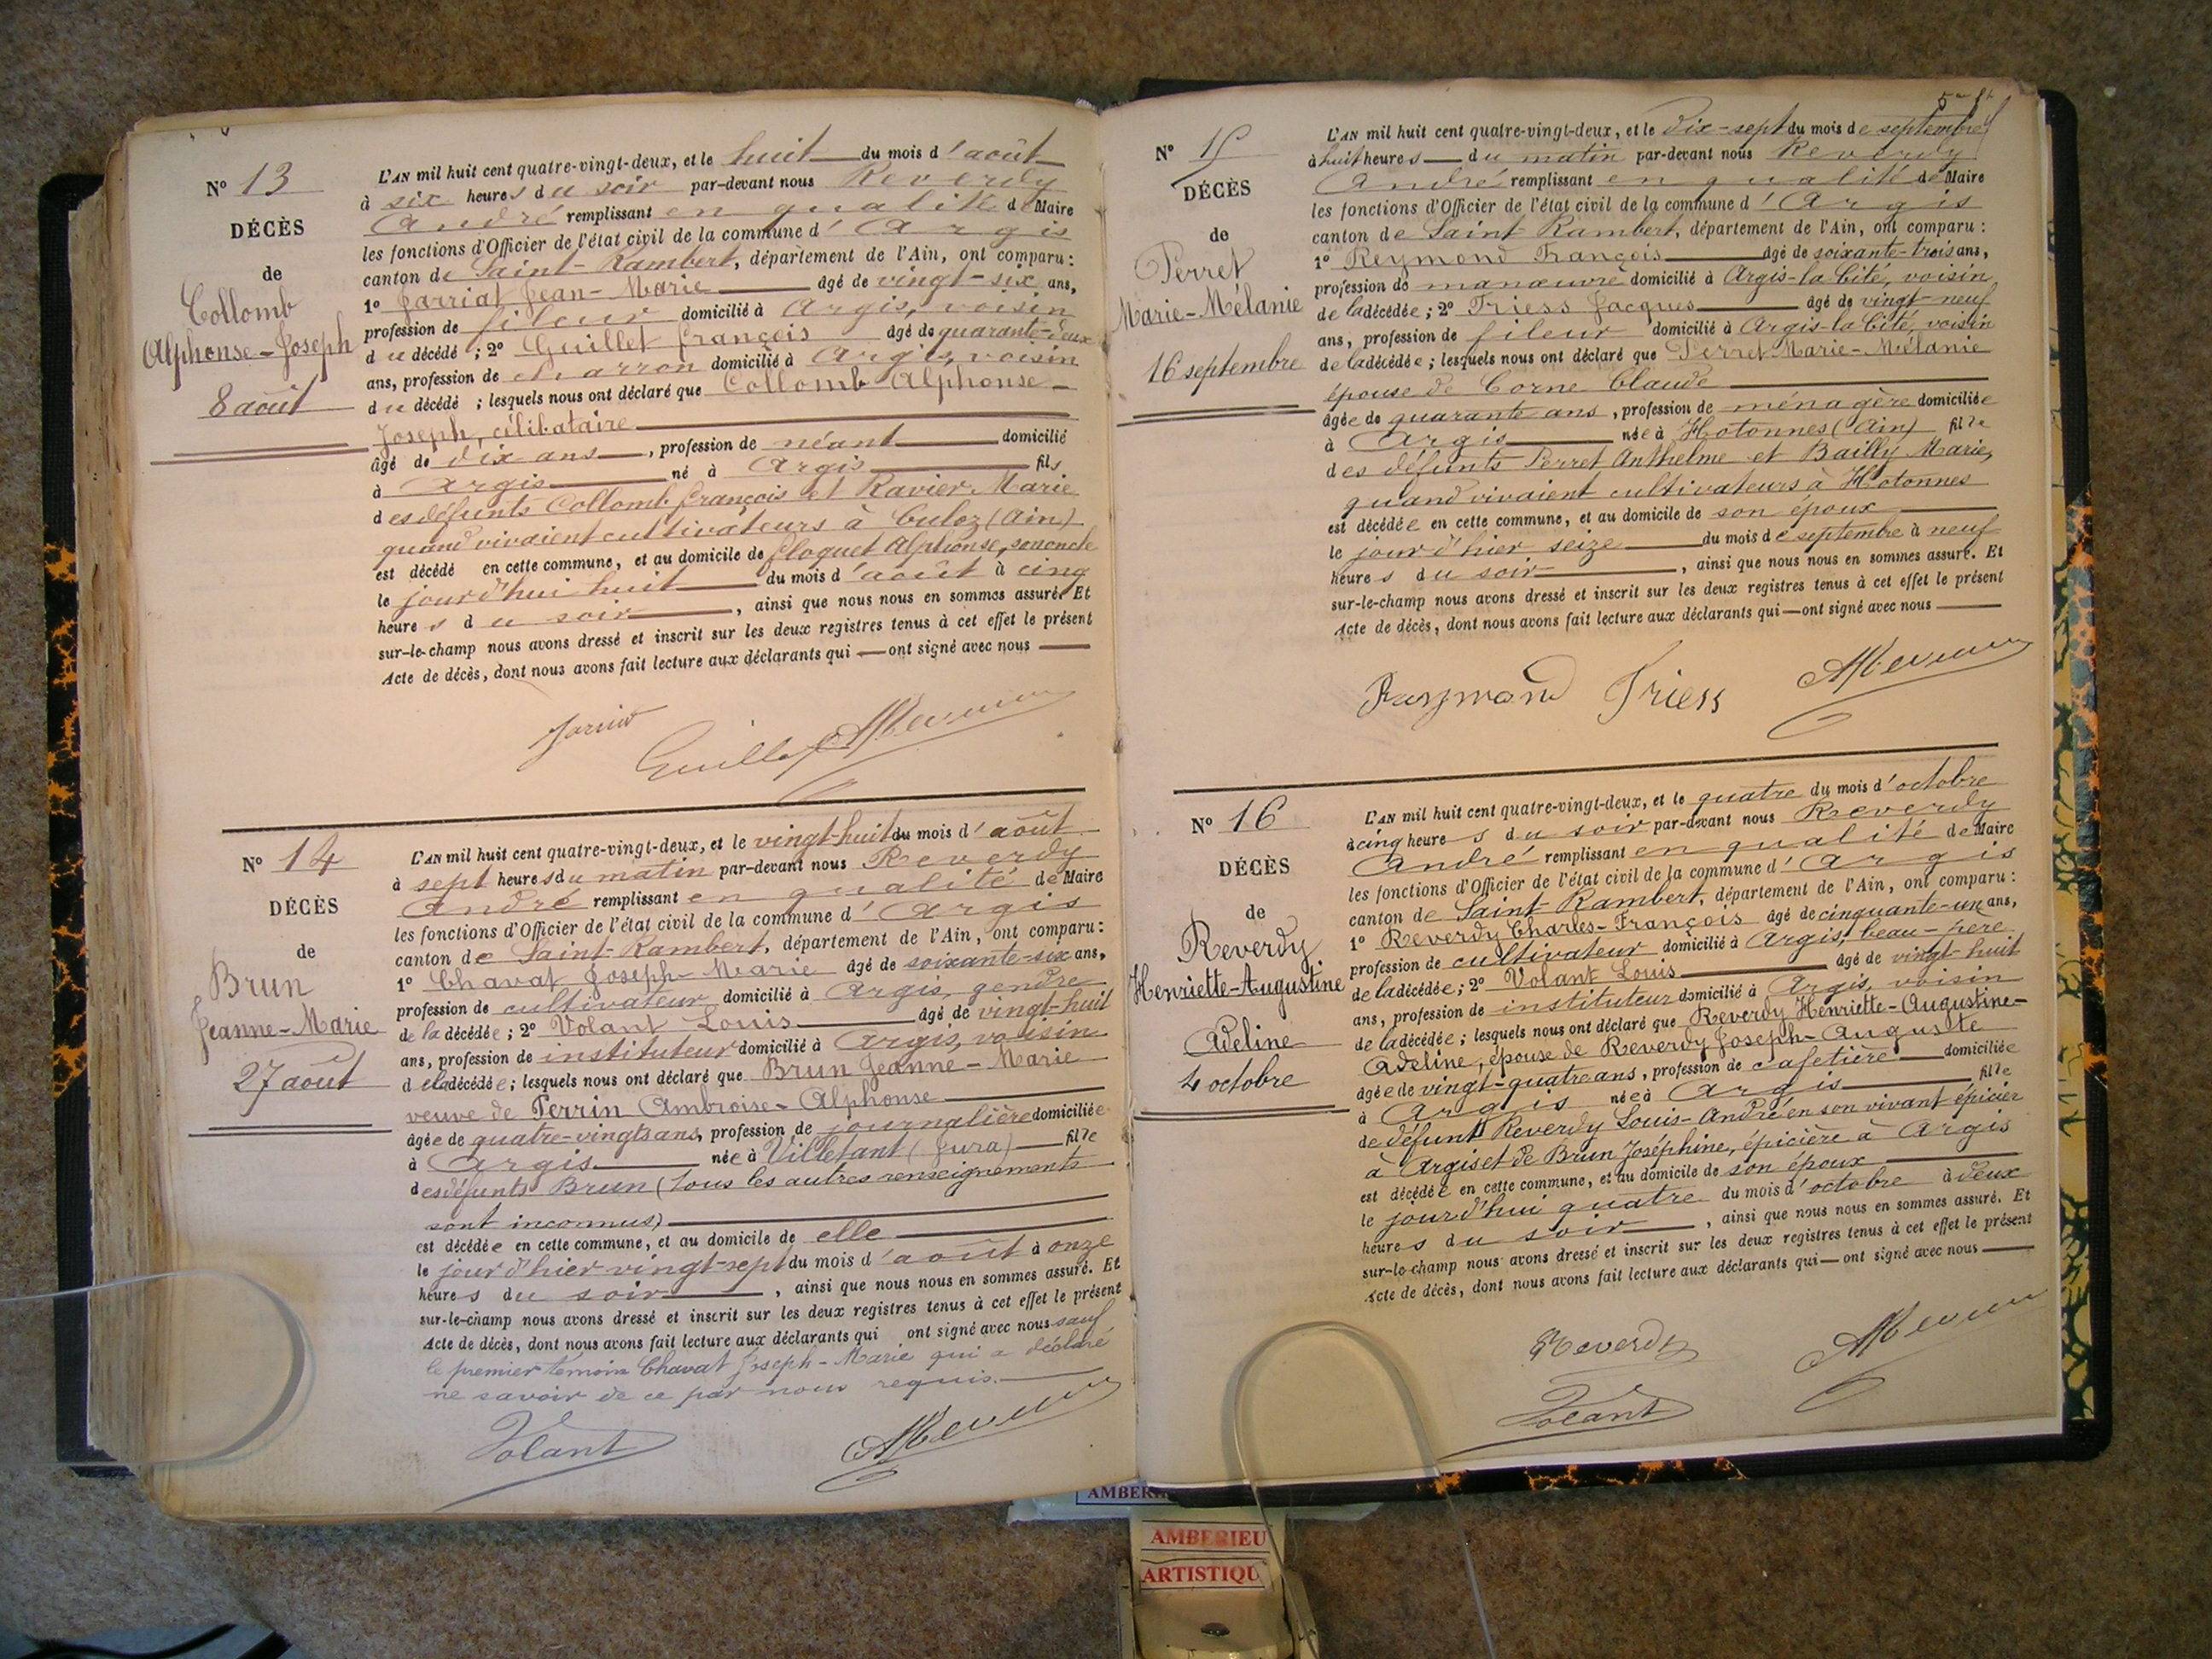 N° 13
DÉCÈS
de
Collomb
Alphonse-Joseph
8 août
L'AN mil huit cent quatre-vingt-deux, et le huit du mois d'août
à six heures du soir par-devant nous Reverdy
André remplissant en qualité de Maire
les fonctions d'Officier de l'état civil de la commune d'Argis
canton de Saint-Rambert, département de l'Ain, ont comparu :
1° Jarriat Jean-Marie âgé de vingt-six ans,
profession de fileur domicilié à Argis, voisin
du décédé ; 2° Guillet françois âgé de quarante-deux
ans, profession de charron domicilié à Argis, voisin
du décédé ; lesquels nous ont déclaré que Collomb Alphonse-
Joseph, célibataire
âgé de dix ans, profession de néant domicilié
à Argis né à Argis fils
des défunts Collomb françois et Ravier Marie
quand vivaient cultivateurs à Culoz (Ain)
est décédé en cette commune, et au domicile de floquet Alphonse, son oncle
le jourd'hui huit du mois d'août à cinq
heures du soir, ainsi que nous nous en sommes assuré. Et
sur-le-champ nous avons dressé et inscrit sur les deux registres tenus à cet effet le présent
Acte de décès, dont nous avons fait lecture aux déclarants qui — ont signé avec nous
Guillet
N° 14
DÉCÈS
de
Brun
Jeanne-Marie
27 août
L'AN mil huit cent quatre-vingt-deux, et le vingt-huit du mois d'août
à sept heures du matin par-devant nous Reverdy
André remplissant en qualité de Maire
les fonctions d'Officier de l'état civil de la commune d'Argis
canton de Saint-Rambert, département de l'Ain, ont comparu :
1° Chavat Joseph-Marie âgé de soixante-six ans,
profession de cultivateur domicilié à Argis, gendre
de la décédée ; 2° Volant Louis âgé de vingt-huit
ans, profession de instituteur domicilié à Argis, voisin
de la décédée ; lesquels nous ont déclaré que Brun Jeanne-Marie
veuve de Perrin Ambroise-Alphonse
âgée de quatre-vingts ans, profession de journalière domiciliée
à Argis née à Villetant (Jura) fille
des défunts Brun (tous les autres renseignements
sont inconnus)
est décédée en cette commune, et au domicile de elle
le jour d'hier vingt-sept du mois d'août à onze
heures du soir, ainsi que nous nous en sommes assuré. Et
sur-le-champ nous avons dressé et inscrit sur les deux registres tenus à cet effet le présent
Acte de décès, dont nous avons fait lecture aux déclarants qui ont signé avec nous sauf
le premier témoin Chavat Joseph-Marie qui a déclaré
ne savoir de ce par nous requis.
Volant
N° 15
DÉCÈS
de
Perret
Marie-Mélanie
16 septembre
L'AN mil huit cent quatre-vingt-deux, et le Dix-sept du mois de septembre
à huit heures du matin par-devant nous Reverdy
André remplissant en qualité de Maire
les fonctions d'Officier de l'état civil de la commune d'Argis
canton de Saint-Rambert, département de l'Ain, ont comparu :
1° Reymond François âgé de soixante-trois ans,
profession de manœuvre domicilié à Argis-la-Cité, voisin
de la décédée ; 2° Triess Jacques âgé de vingt-neuf
ans, profession de fileur domicilié à Argis-la-Cité, voisin
de la décédée ; lesquels nous ont déclaré que Perret Marie-Mélanie
épouse de Corne Claude
âgée de quarante ans, profession de ménagère domiciliée
à Argis née à Hotonnes (Ain) fille
des défunts Perret Anthelme et Bailly Marie,
quand vivaient cultivateurs à Hotonnes
est décédée en cette commune, et au domicile de son époux
le jour d'hier seize du mois de septembre à neuf
heures du soir, ainsi que nous nous en sommes assuré. Et
sur-le-champ nous avons dressé et inscrit sur les deux registres tenus à cet effet le présent
Acte de décès, dont nous avons fait lecture aux déclarants qui — ont signé avec nous
Raymond Triess
N° 16
DÉCÈS
de
Reverdy
Henriette-Augustine
Adeline
4 octobre
L'AN mil huit cent quatre-vingt-deux, et le quatre du mois d'octobre
à cinq heures du soir par-devant nous Reverdy
André remplissant en qualité de Maire
les fonctions d'Officier de l'état civil de la commune d'Argis
canton de Saint-Rambert, département de l'Ain, ont comparu :
1° Reverdy Charles-François âgé de cinquante-un ans,
profession de cultivateur domicilié à Argis, beau-père
de la décédée ; 2° Volant Louis âgé de vingt-huit
ans, profession de instituteur domicilié à Argis, voisin
de la décédée ; lesquels nous ont déclaré que Reverdy Henriette-Augustine-
Adeline, épouse de Reverdy Joseph-Auguste
âgée de vingt-quatre ans, profession de cafetière domiciliée
à Argis née à Argis fille
de défunt Reverdy Louis-André en son vivant épicier
à Argis et de Brun Joséphine, épicière à Argis
est décédée en cette commune, et au domicile de son époux
le jourd'hui quatre du mois d'octobre à deux
heures du soir, ainsi que nous nous en sommes assuré. Et
sur-le-champ nous avons dressé et inscrit sur les deux registres tenus à cet effet le présent
Acte de décès, dont nous avons fait lecture aux déclarants qui — ont signé avec nous
Reverdy
Volant
AMBERIEU
ARTISTIQU